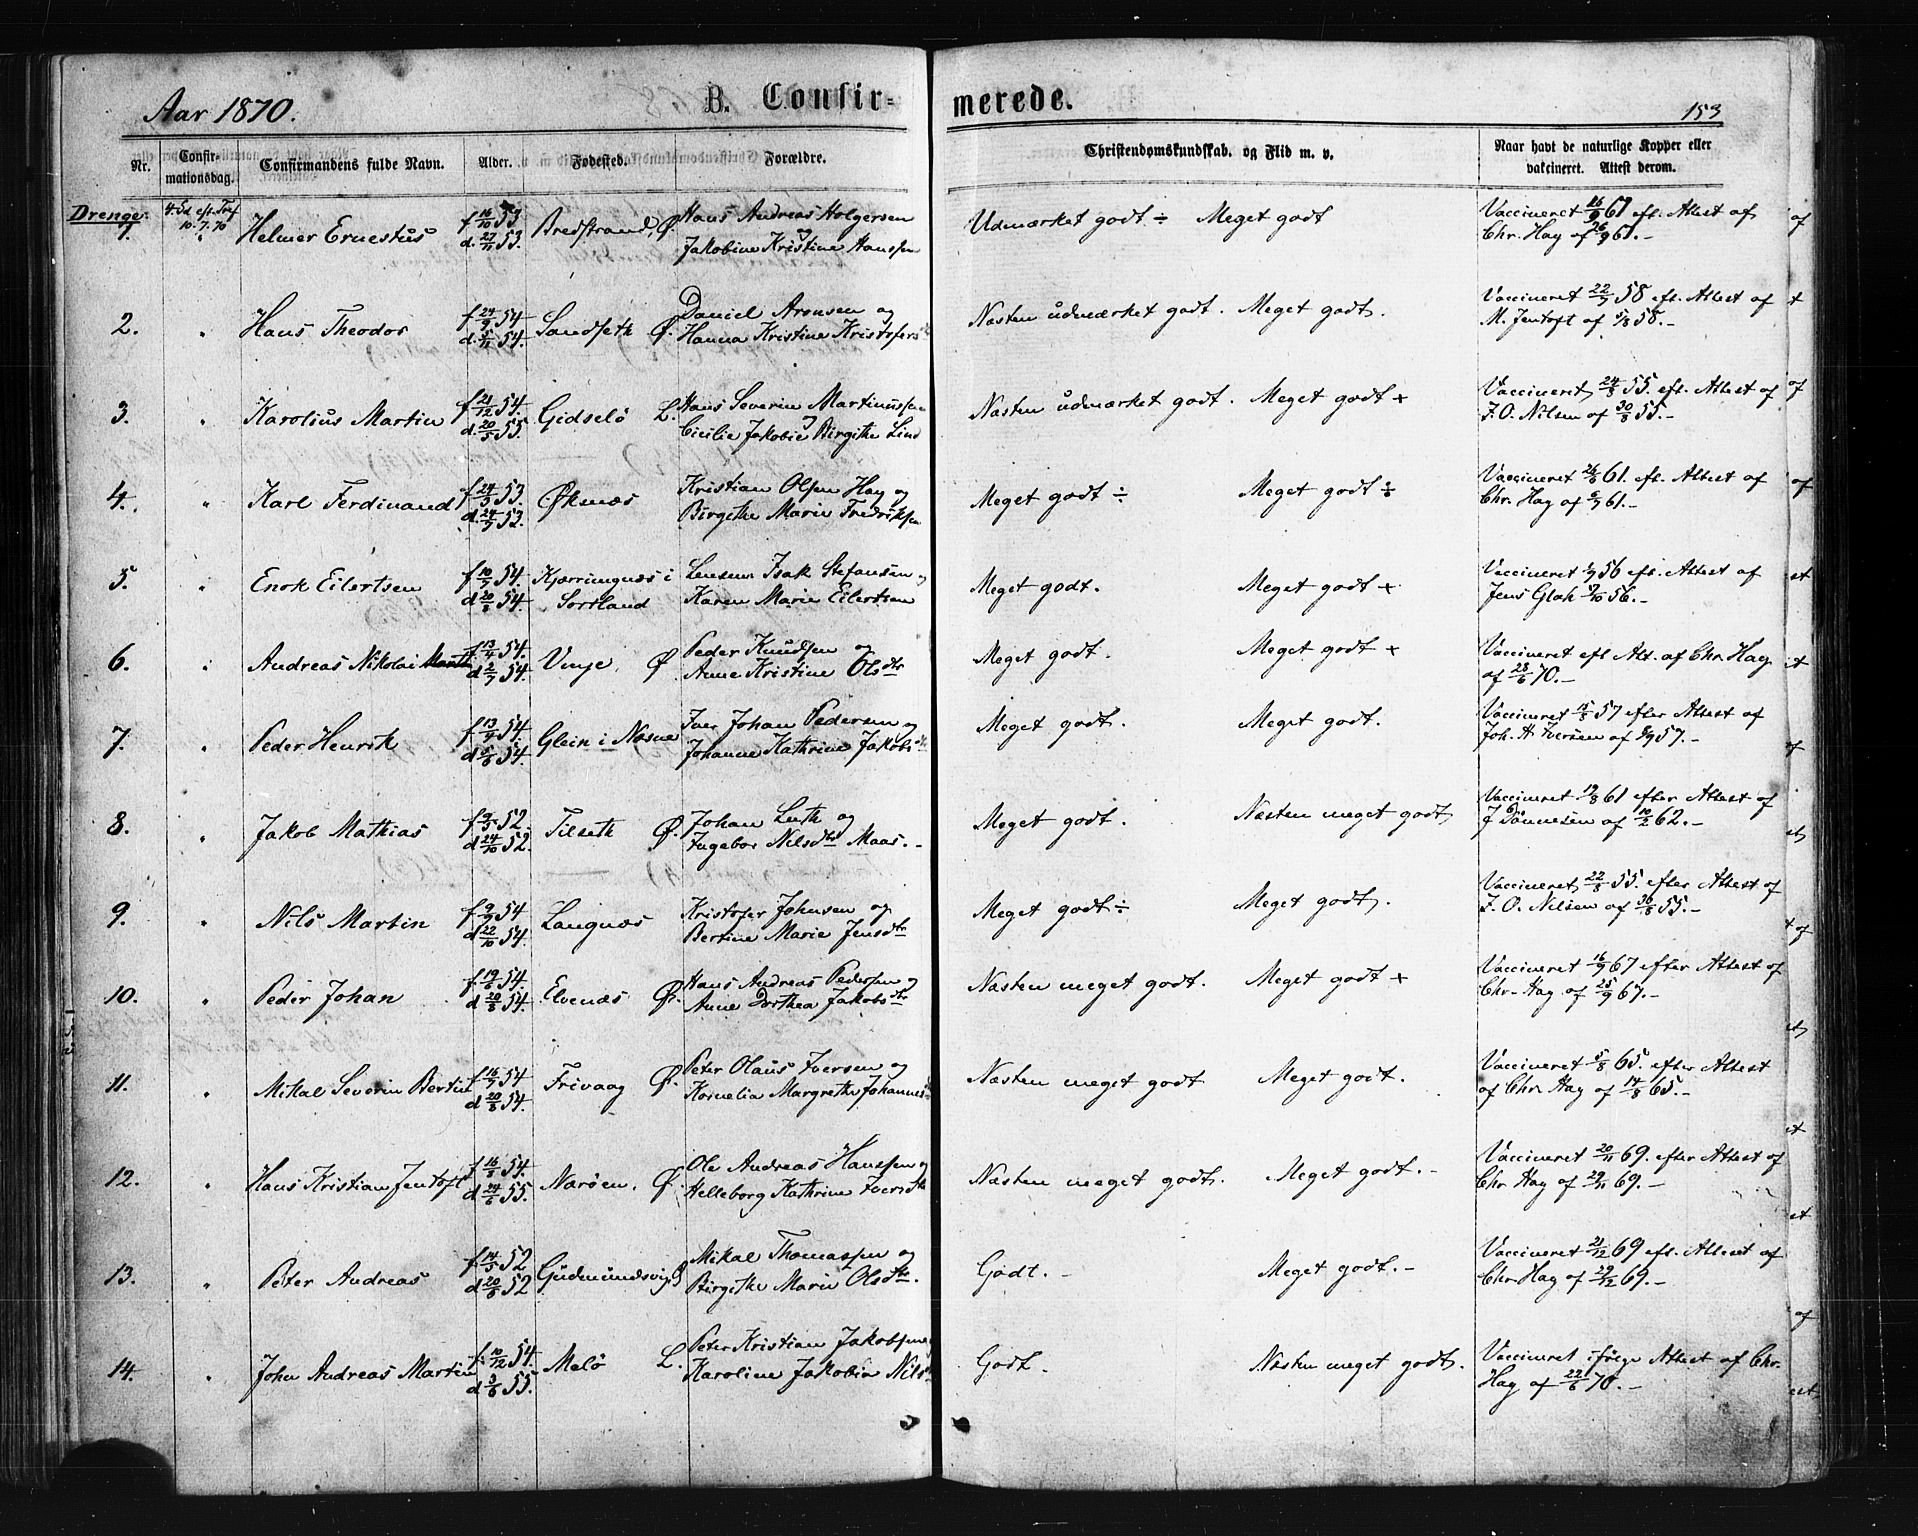 Aar 1870.
B. Confir-
merede.
153
Nr.
Confir-
mationsdag.
Confirmandens fulde Navn.
Alder.
Fødested.
Forældre.
Christendomskundskab. og Flid m. v.
Naar havt de naturlige Kopper eller
vakcineret. Attest derom.
Drenge.
4. Sd. ef. Tref
10.7.70
1. Helmer Ernestus
f 16/10 53
d. 27/11 53.
Bredstrand, Ø.
Hans Andreas Holgersen
og
Jakobine Kristine Hanssen
Udmærket godt ÷ Meget godt
Vaccineret 16/9 67 eft. Attest af
Chr. Hag af 26/9 67.-
2. " Hans Theodor
f 24/9 54
d. 5/11 54.
Sandseth Ø.
Daniel Aronsen og
Hanna Kristine Kristofers
Næsten udmærket godt. Meget godt.
Vaccineret 22/7 58 eft. Attest af
M. Jentoft af 5/8 58.-
3. " Karolius Martin
f 21/12 54.
d. 20/5 55.
Gidselö L.
Hans Severin Martinussen
og
Cicilie Jakobie Birgithe Lind
Næsten udmærket godt. Meget godt +
Vaccineret 24/8 55. eft. Attest af
Z. O. Nilsen af 30/8 55.-
4. " Karl Ferdinand
f 24/3 53.
d. 24/7 53.
Øksnæs
Kristian Olsen Hag og
Birgithe Marie Fredriksen
Meget godt ÷ Meget godt ÷
Vaccineret 26/6 61. eft. Attest af
Chr. Hag af 6/7 61.-
5. " Enok Eilertsen
f 10/7 54.
d. 20/8 54.
Kjærringnæs i
Sortland
Lensm. Isak Stefansen og
Karen Marie Eilertsen
Meget godt. Meget godt +
Vaccineret 56 eft. Attest af
Jens Glah 56.-
6. " Andreas Nikolai
f. 13/4 54.
d. 2/7 54.
Vinje, Ø.
Peder Knudsen og
Anne Kristine Olsdtr
Meget godt. Meget godt +
Vaccineret eft Att. af Chr. Hag
af 28/6 70.-
7. " Peder Henrik
f 13/4 54.
d 5/6 54.
Glein i Næsne
Iver Johan Pedersen og
Johanne Kathrine Jakobsdtr
Meget godt. Meget godt.
Vaccineret 57 efter Attest af
Joh. A. Iversen af 57.-
8. " Jakob Mathias
f 9/5 52.
d 24/10 52.
Tilseth Ø.
Johan Luth og
Ingebor Nilsdtr Maas.-
Meget godt. Næsten meget godt
Vaccineret 19/8 61 efter Attest af
J Tönnesen af 10/2 62.-
9. " Nils Martin
f 9/9 54
d 22/10 54.
Langnæs
Kristofer Johnsen og
Bertine Marie Jensdtr
Meget godt ÷ Meget godt.
Vaccineret 22/8 55. efter Attest af
Z. O. Nilsen af 30/8 55.-
10. " Peder Johan
f. 19/6 54.
d 20/8 54.
Elvenæs Ø.
Hans Andreas Pedersen og
Anne Dorthea Jakobsdtr
Næsten meget godt. Meget godt +
Vaccineret 16/9 67 efter Attest af
Chr. Hag af 25/9 67.-
11. " Mikal Severin Bertin
f 16/7 54
d 20/8 54.
Frivaag Ø.
Peter Olaus Iversen og
Kornelia Margrethe Johannes
Næsten meget godt Meget godt.
Vaccineret 5/8 65. efter Attest
af Chr. Hag af 14/8 65.-
12. " Hans Kristian Jentoft
f 16/9 54.
d 24/6 55.
Nærøen, Ø.
Ole Andreas Hanssen og
Helleborg Kathrine Iversdtr
Næsten meget godt. Meget godt.-
Vaccineret 20/11 69. efter Attest af
Chr Hag af 29/11 69.-
13. " Peter Andreas
f 14/5 52
d 20/6 52
Gudmundsvig Ø
Mikal Thomassen og
Birgithe Marie Olsdtr.
Godt.- Meget godt.-
Vaccineret 21/12 69 eft. Attest af
Chr Hag af 29/12 69.-
14. " John Andreas Martin
f. 10/12 54.
d 3/6 55.
Melö L.
Peter Kristian Jakobsen
Karoline Jakobia Nils
Godt. Næsten meget godt.
Vaccineret ifølge Attest af Chr.
Hag af 22/6 70.-